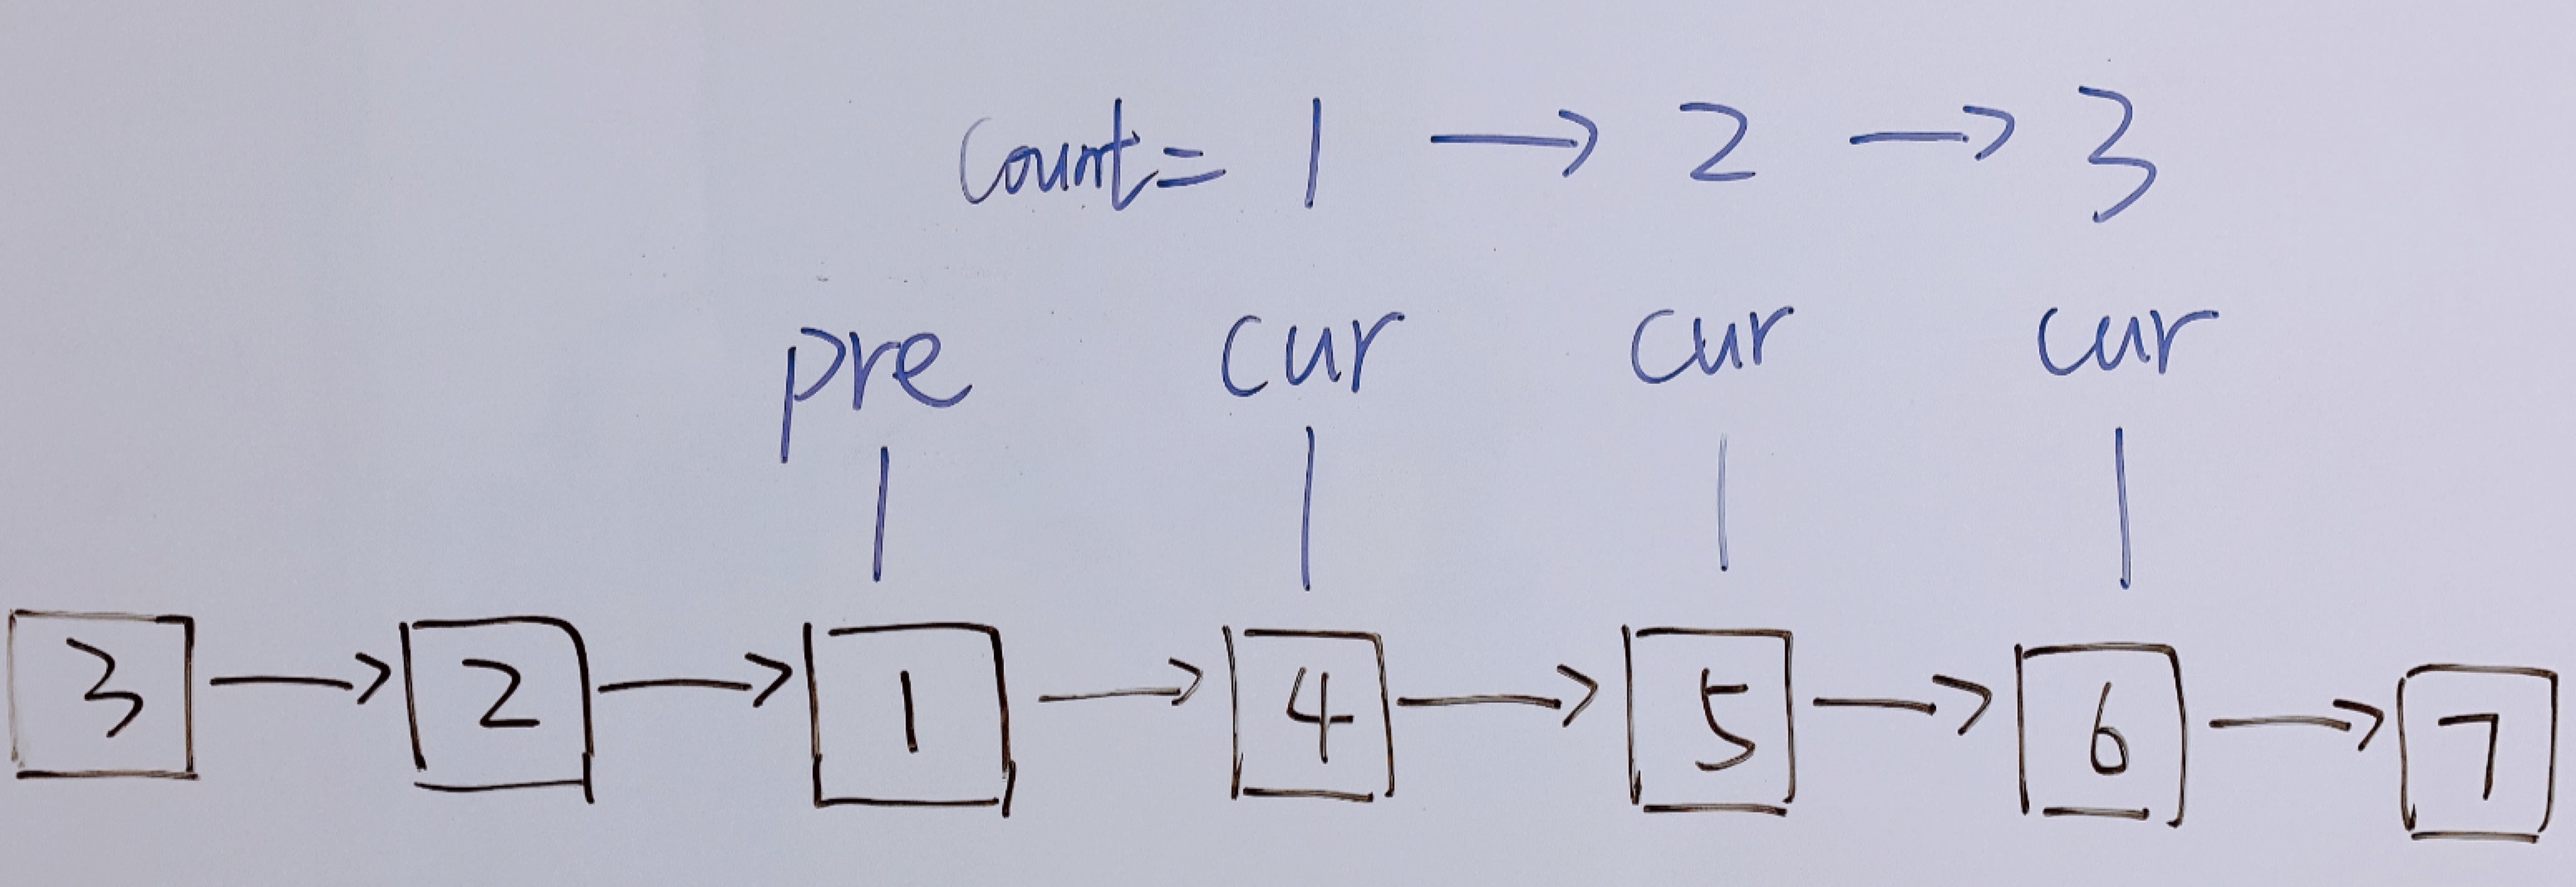 Count= 1 → 2 → 3
pre cur cur cur
3 → 2 → 1 → 4 → 5 → 6 → 7